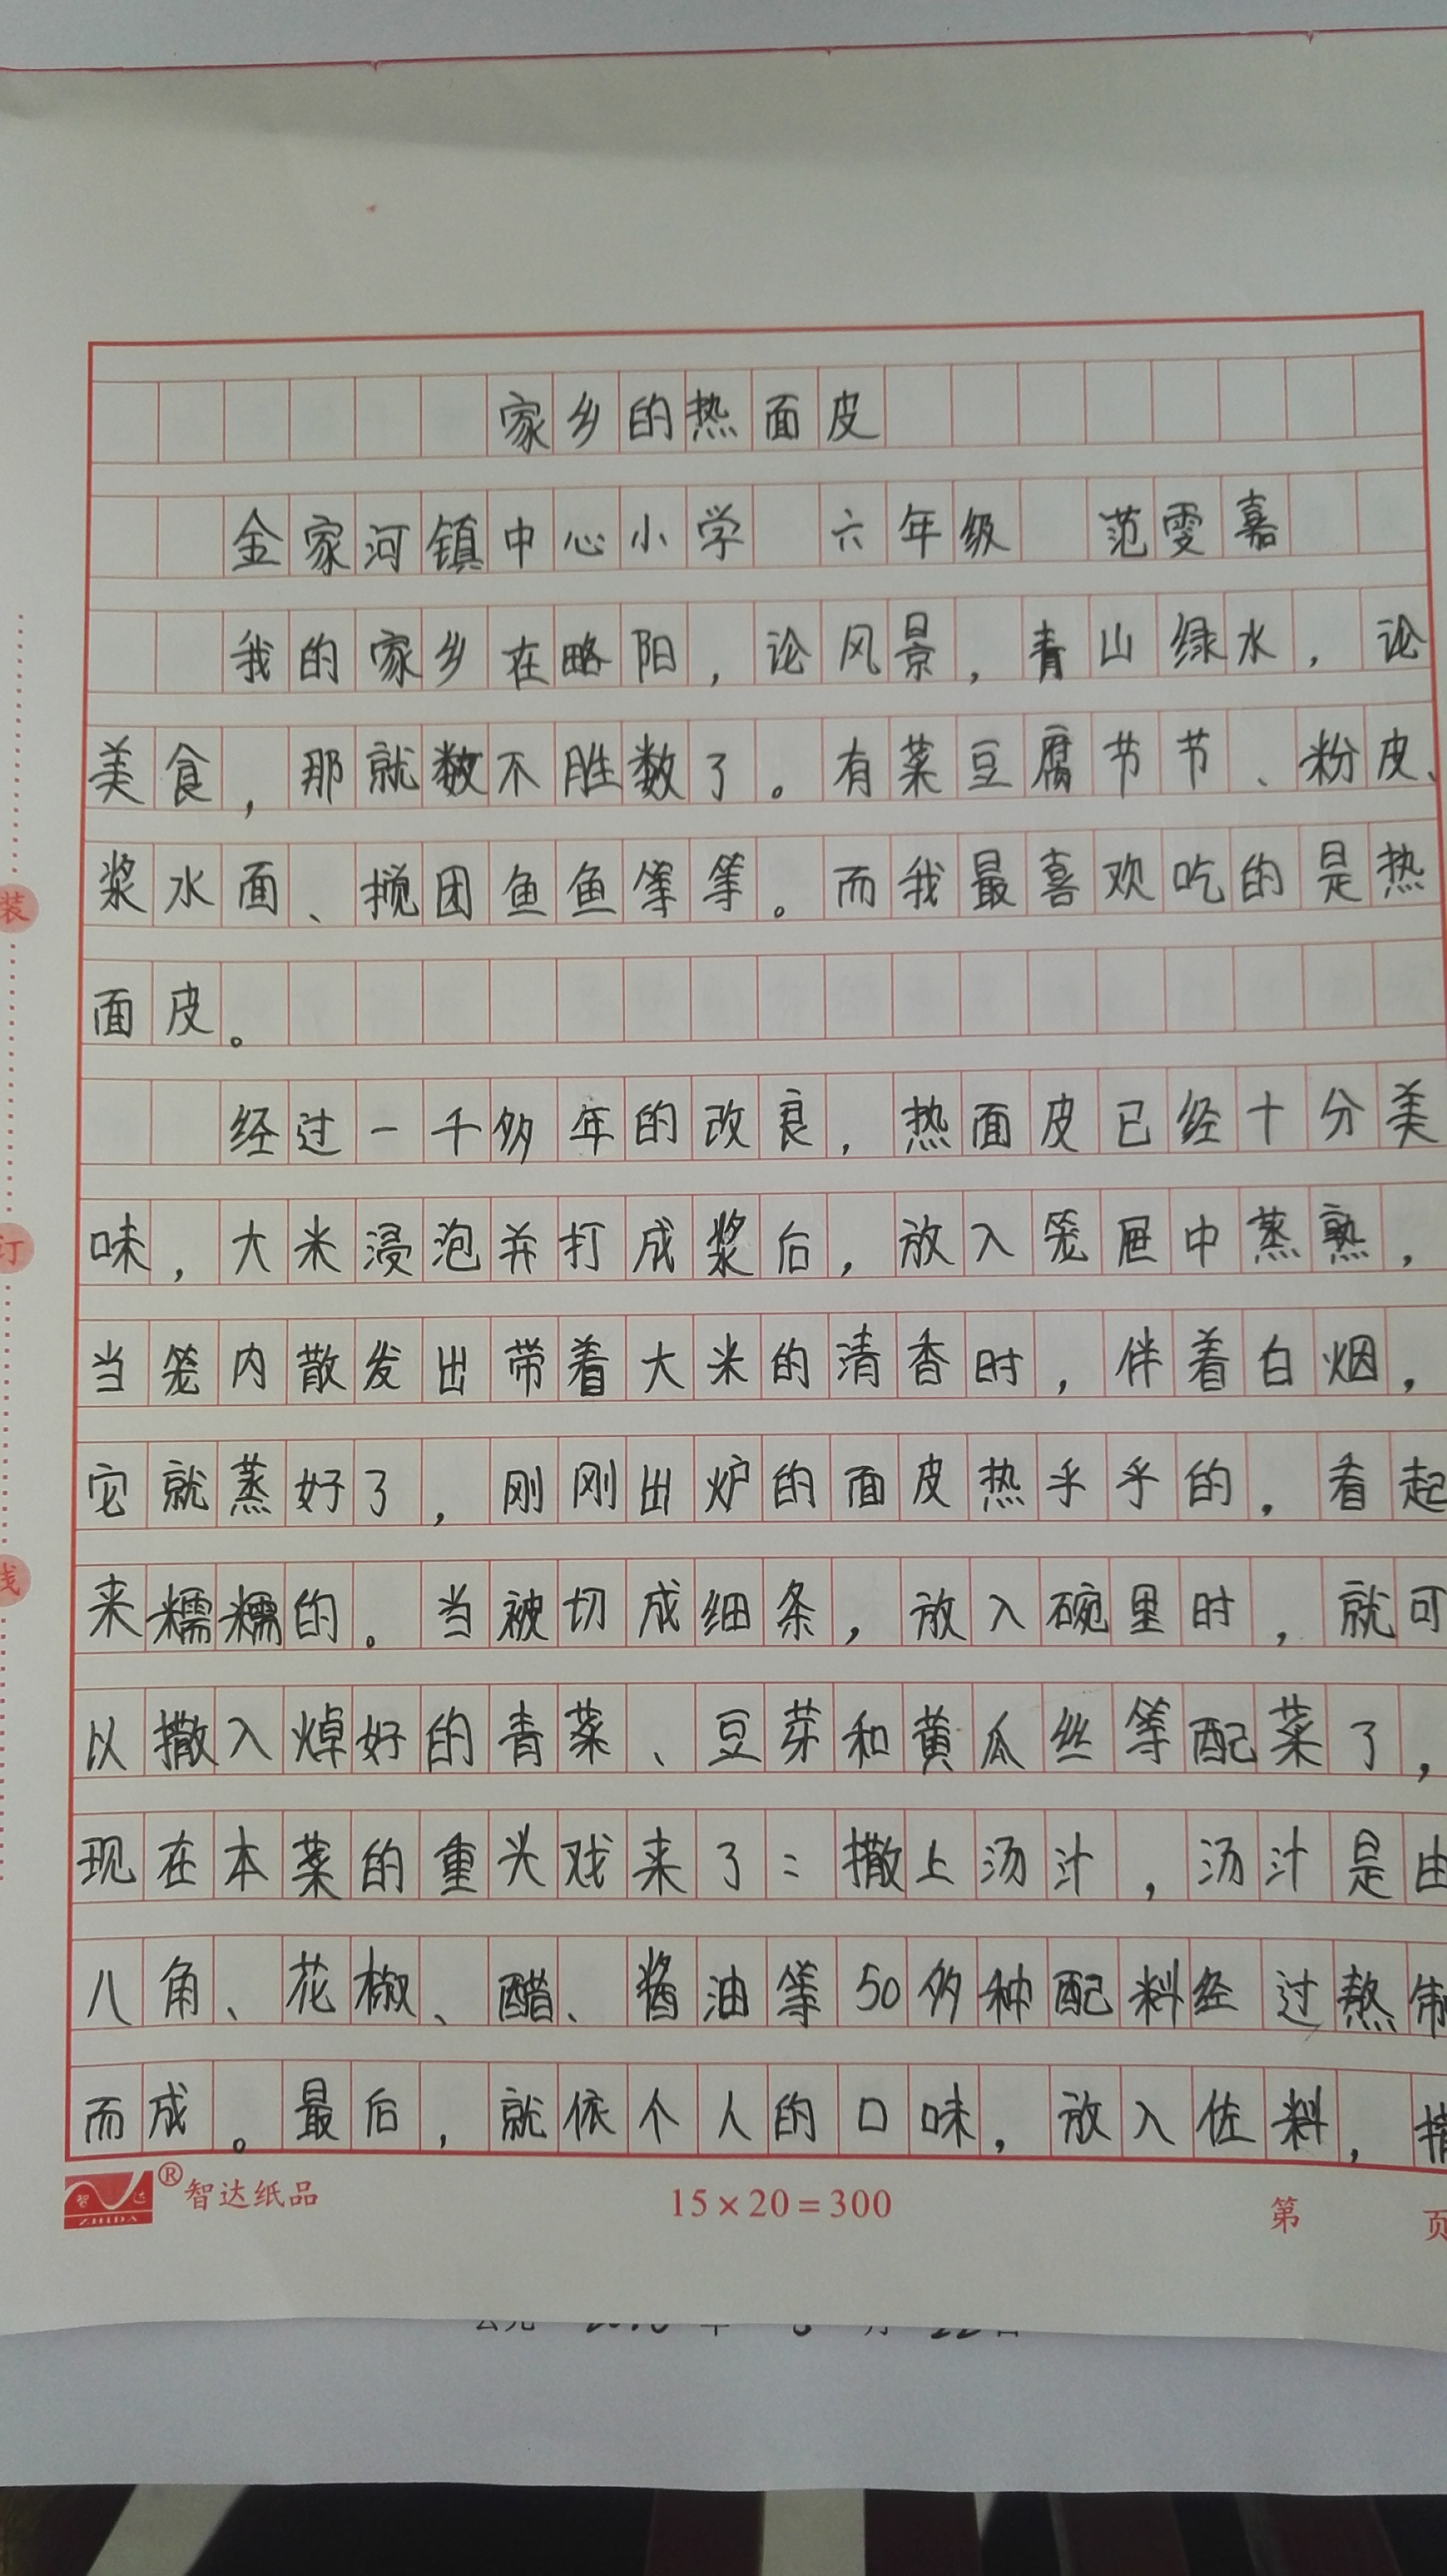 家乡的热面皮
金家河镇中心小学 六年级 范雯嘉
我的家乡在略阳，论风景，青山绿水，论
美食，那就数不胜数了。有菜豆腐节节、粉皮、
浆水面、搅团鱼鱼等等。而我最喜欢吃的是热
面皮。
经过一千多年的改良，热面皮已经十分美
味，大米浸泡并打成浆后，放入笼屉中蒸熟，
当笼内散发出带着大米的清香时，伴着白烟，
它就蒸好了，刚刚出炉的面皮热乎乎的，看起
来糯糯的。当被切成细条，放入碗里时，就可
以撒入焯好的青菜、豆芽和黄瓜丝等配菜了，
现在本菜的重头戏来了：撒上汤汁，汤汁是由
八角、花椒、醋、酱油等50多种配料经过熬制
而成。最后，就依个人的口味，放入佐料，
装
订
线
智达 ZHIDA ® 智达纸品 15×20=300 第 页